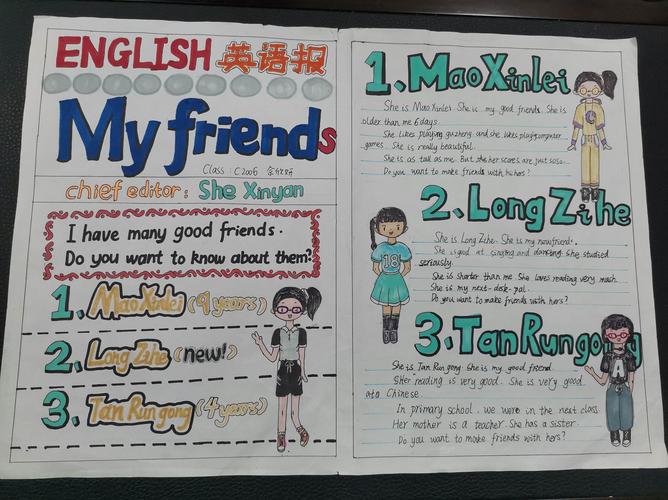 ENGLISH 英语报
My friends
Class: C2006 佘欣妍
chief editor: She Xinyan
I have many good friends.
Do you want to know about them?
1、Mao Xinlei (9 years)
2、Long Zihe (new!)
3、Tan Run gong (4 years)
1、Mao Xinlei
She is Mao Xinlei. She is my good friends. She is
older than me 6 days.
She likes playing guzheng and she likes playing computer
games. She is really beautiful.
She is as tall as me. But she her scores are just soso.
Do you want to make friends with hers?
2、Long Zihe
She is Long Zihe. She is my new friend.
She is good at singing and dancing. She studied
seriously.
She is shorter than me. She loves reading very much.
She is my next-desk-pal.
Do you want to make friends with hers?
3、Tan Run gong
She is Tan Run gong. She is my good friend.
Her reading is very good. She is very good
at Chinese.
In primary school, we were in the next class.
Her mother is a teacher. She has a sister.
Do you want to make friends with hers?
18
A